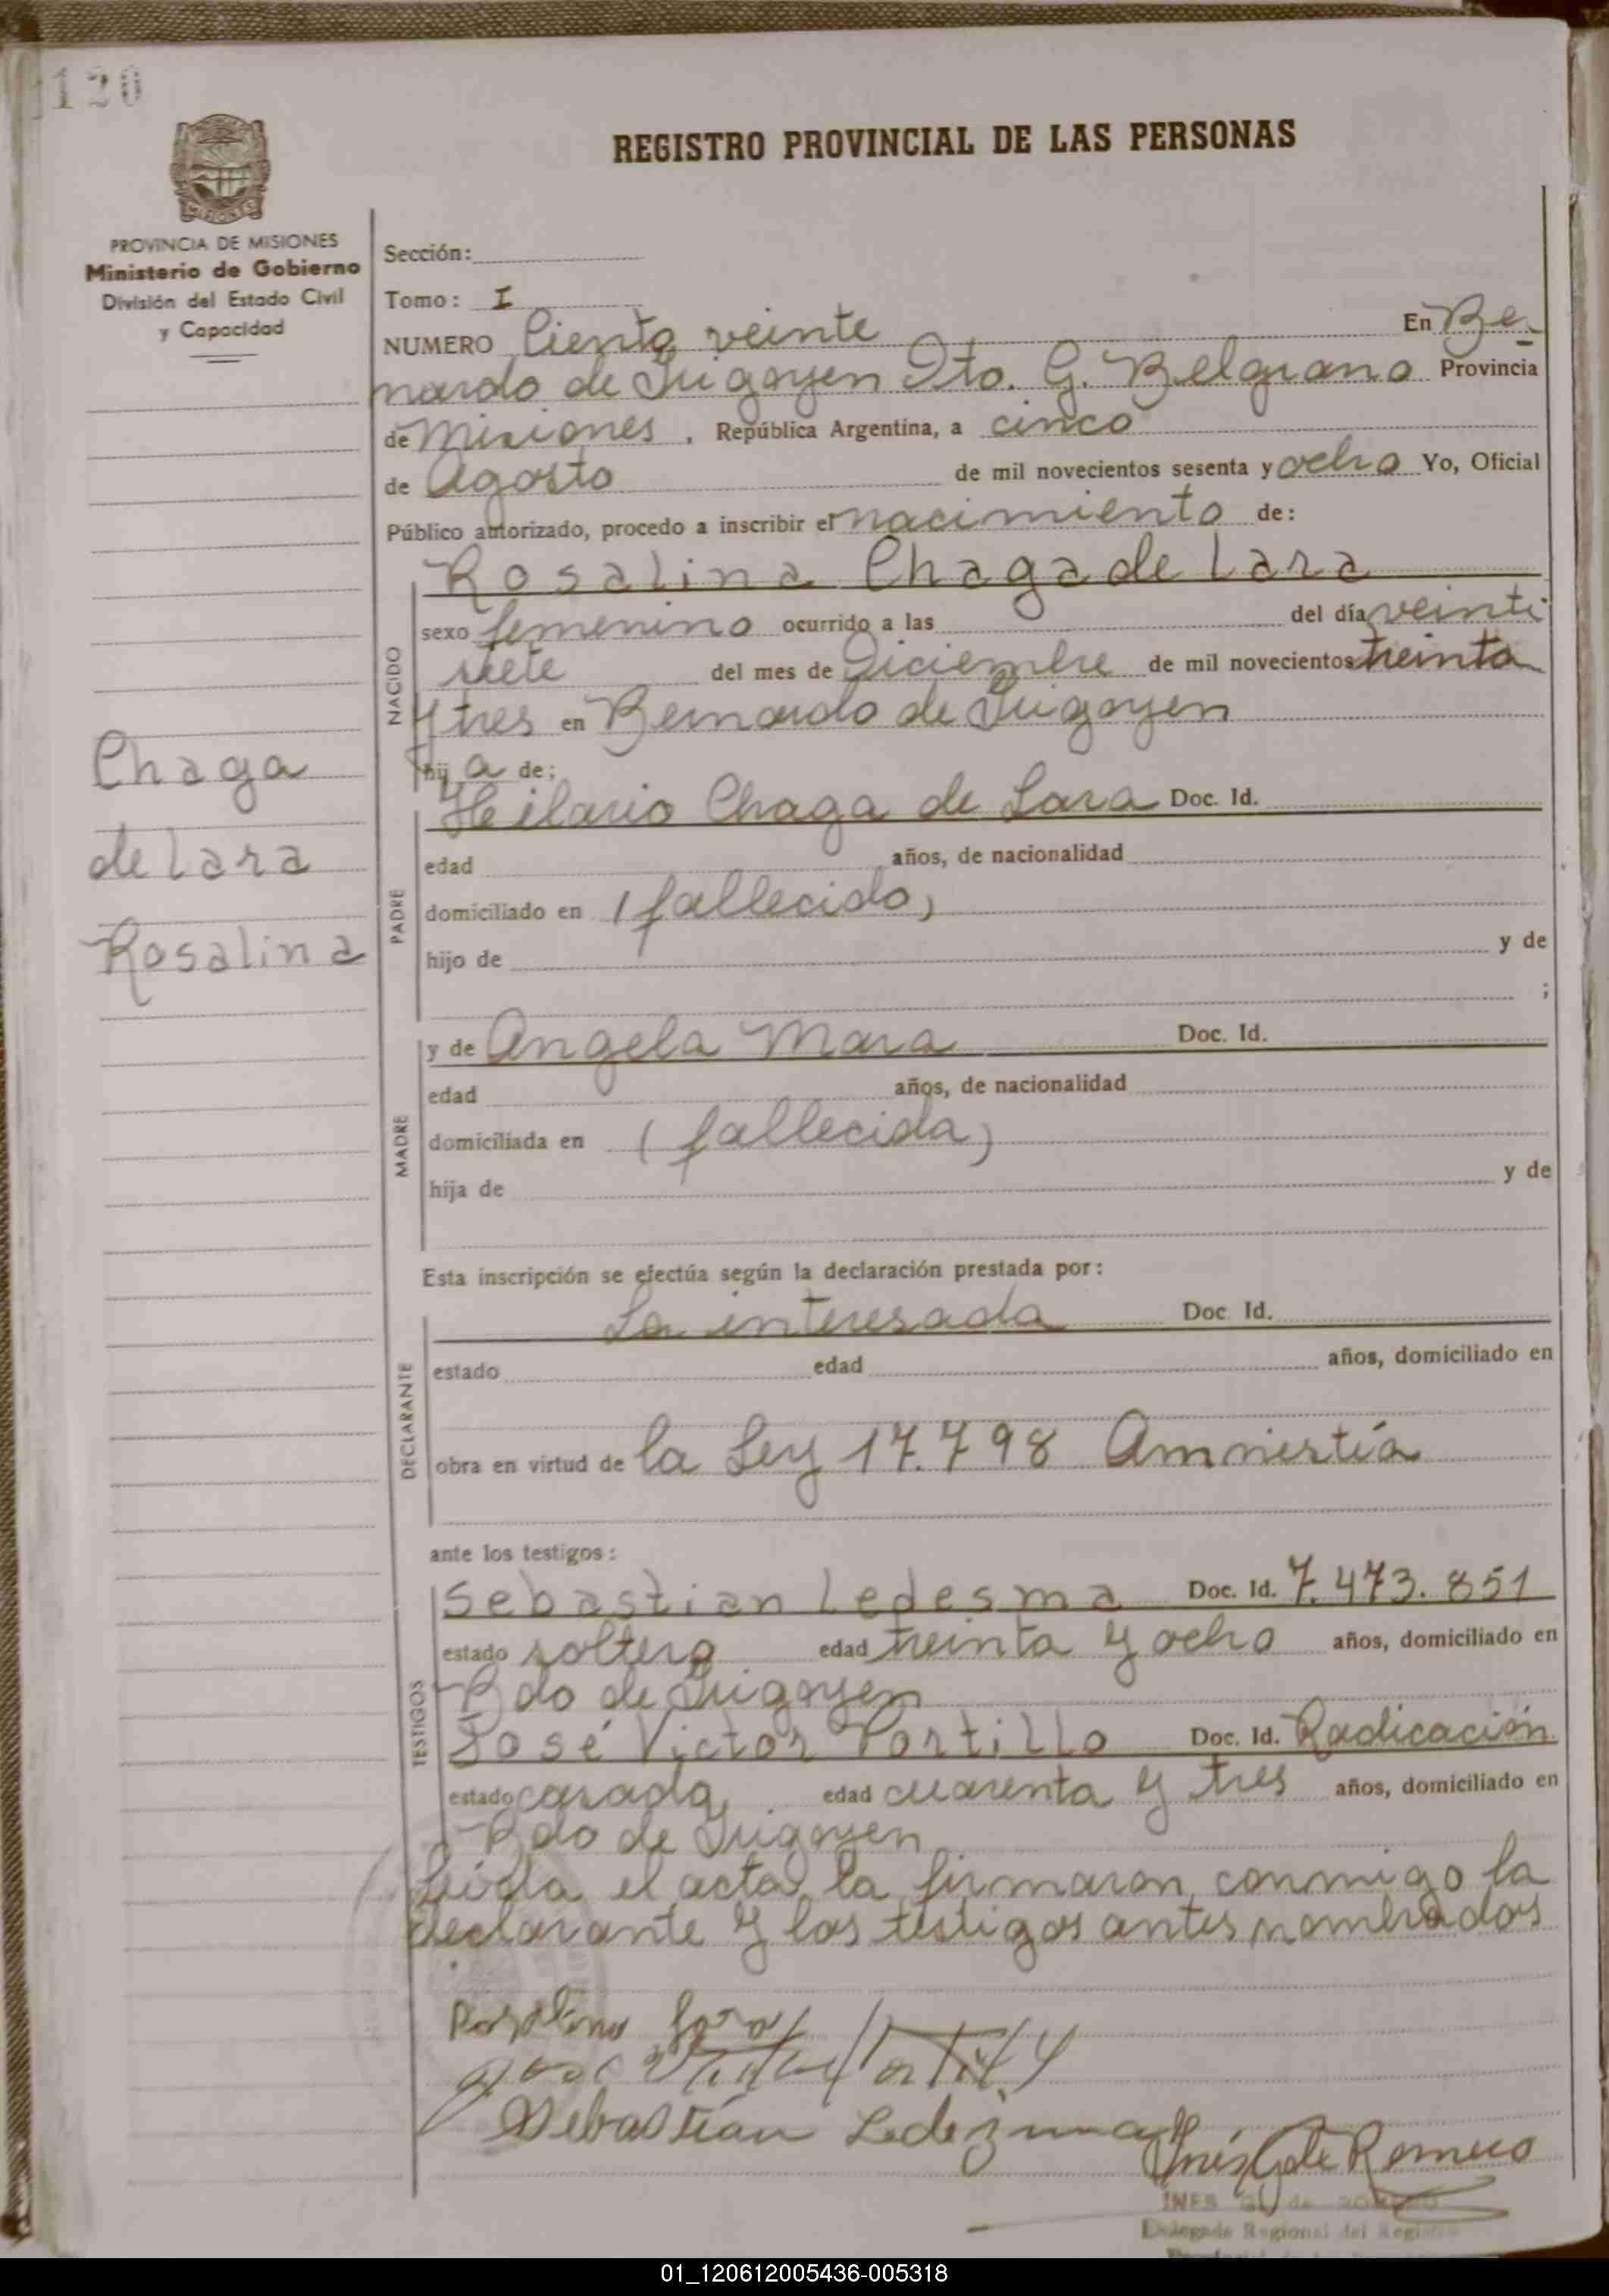 120
REGISTRO PROVINCIAL DE LAS PERSONAS
PROVINCIA DE MISIONES
Ministerio de Gobierno
División del Estado Civil
y Capacidad
Sección:
Tomo: I
NUMERO Ciento veinte En Be
nardo de Irigoyen Dto. G. Belgrano Provincia
de Misiones, República Argentina, a cinco
de Agosto de mil novecientos sesenta y ocho Yo, Oficial
Público autorizado, procedo a inscribir el nacimiento de:
Rosalina Chaga de Lara
NACIDO
sexo femenino ocurrido a las del día veinti
siete del mes de Diciembre de mil novecientos treinta
y tres en Bernardo de Irigoyen
hija de:
Chaga
de Lara
Rosalina
PADRE
Heilario Chaga de Lara Doc. Id.
edad años, de nacionalidad
domiciliado en (fallecido)
hijo de y de
;
MADRE
y de Angela Mara Doc. Id.
edad años, de nacionalidad
domiciliada en (fallecida)
hija de y de
Esta inscripción se efectúa según la declaración prestada por:
DECLARANTE
La interesada Doc. Id.
estado edad años, domiciliado en
obra en virtud de la Ley 17.798 Amnistía
ante los testigos:
TESTIGOS
Sebastian Ledesma Doc. Id. 7.473.851
estado soltero edad treinta y ocho años, domiciliado en
Bdo de Irigoyen
José Victor Portillo Doc. Id. Radicación
estado casado, edad cuarenta y tres años, domiciliado en
Bdo de Irigoyen
Leída el acta, la firmaron conmigo la
declarante y los testigos antes nombrados
Rosalina Lara
Jose Victor Portillo
Sebastían Ledezma
Inés G de Romero
INES G. de ROMERO
Delegada Regional del Registro
01_120612005436-005318